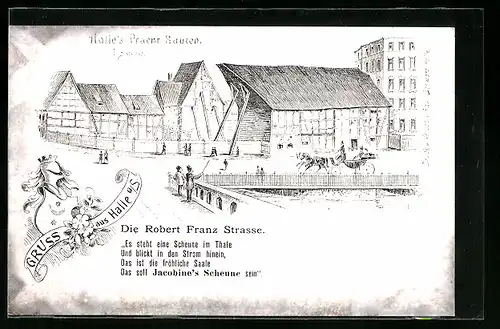 Halle's Pracht Bauten.
GRUSS aus Halle a/S.
Die Robert Franz Strasse.
„Es steht eine Scheune im Thale
Und blickt in den Strom hinein,
Das ist die fröhliche Saale
Das soll Jacobine's Scheune sein“